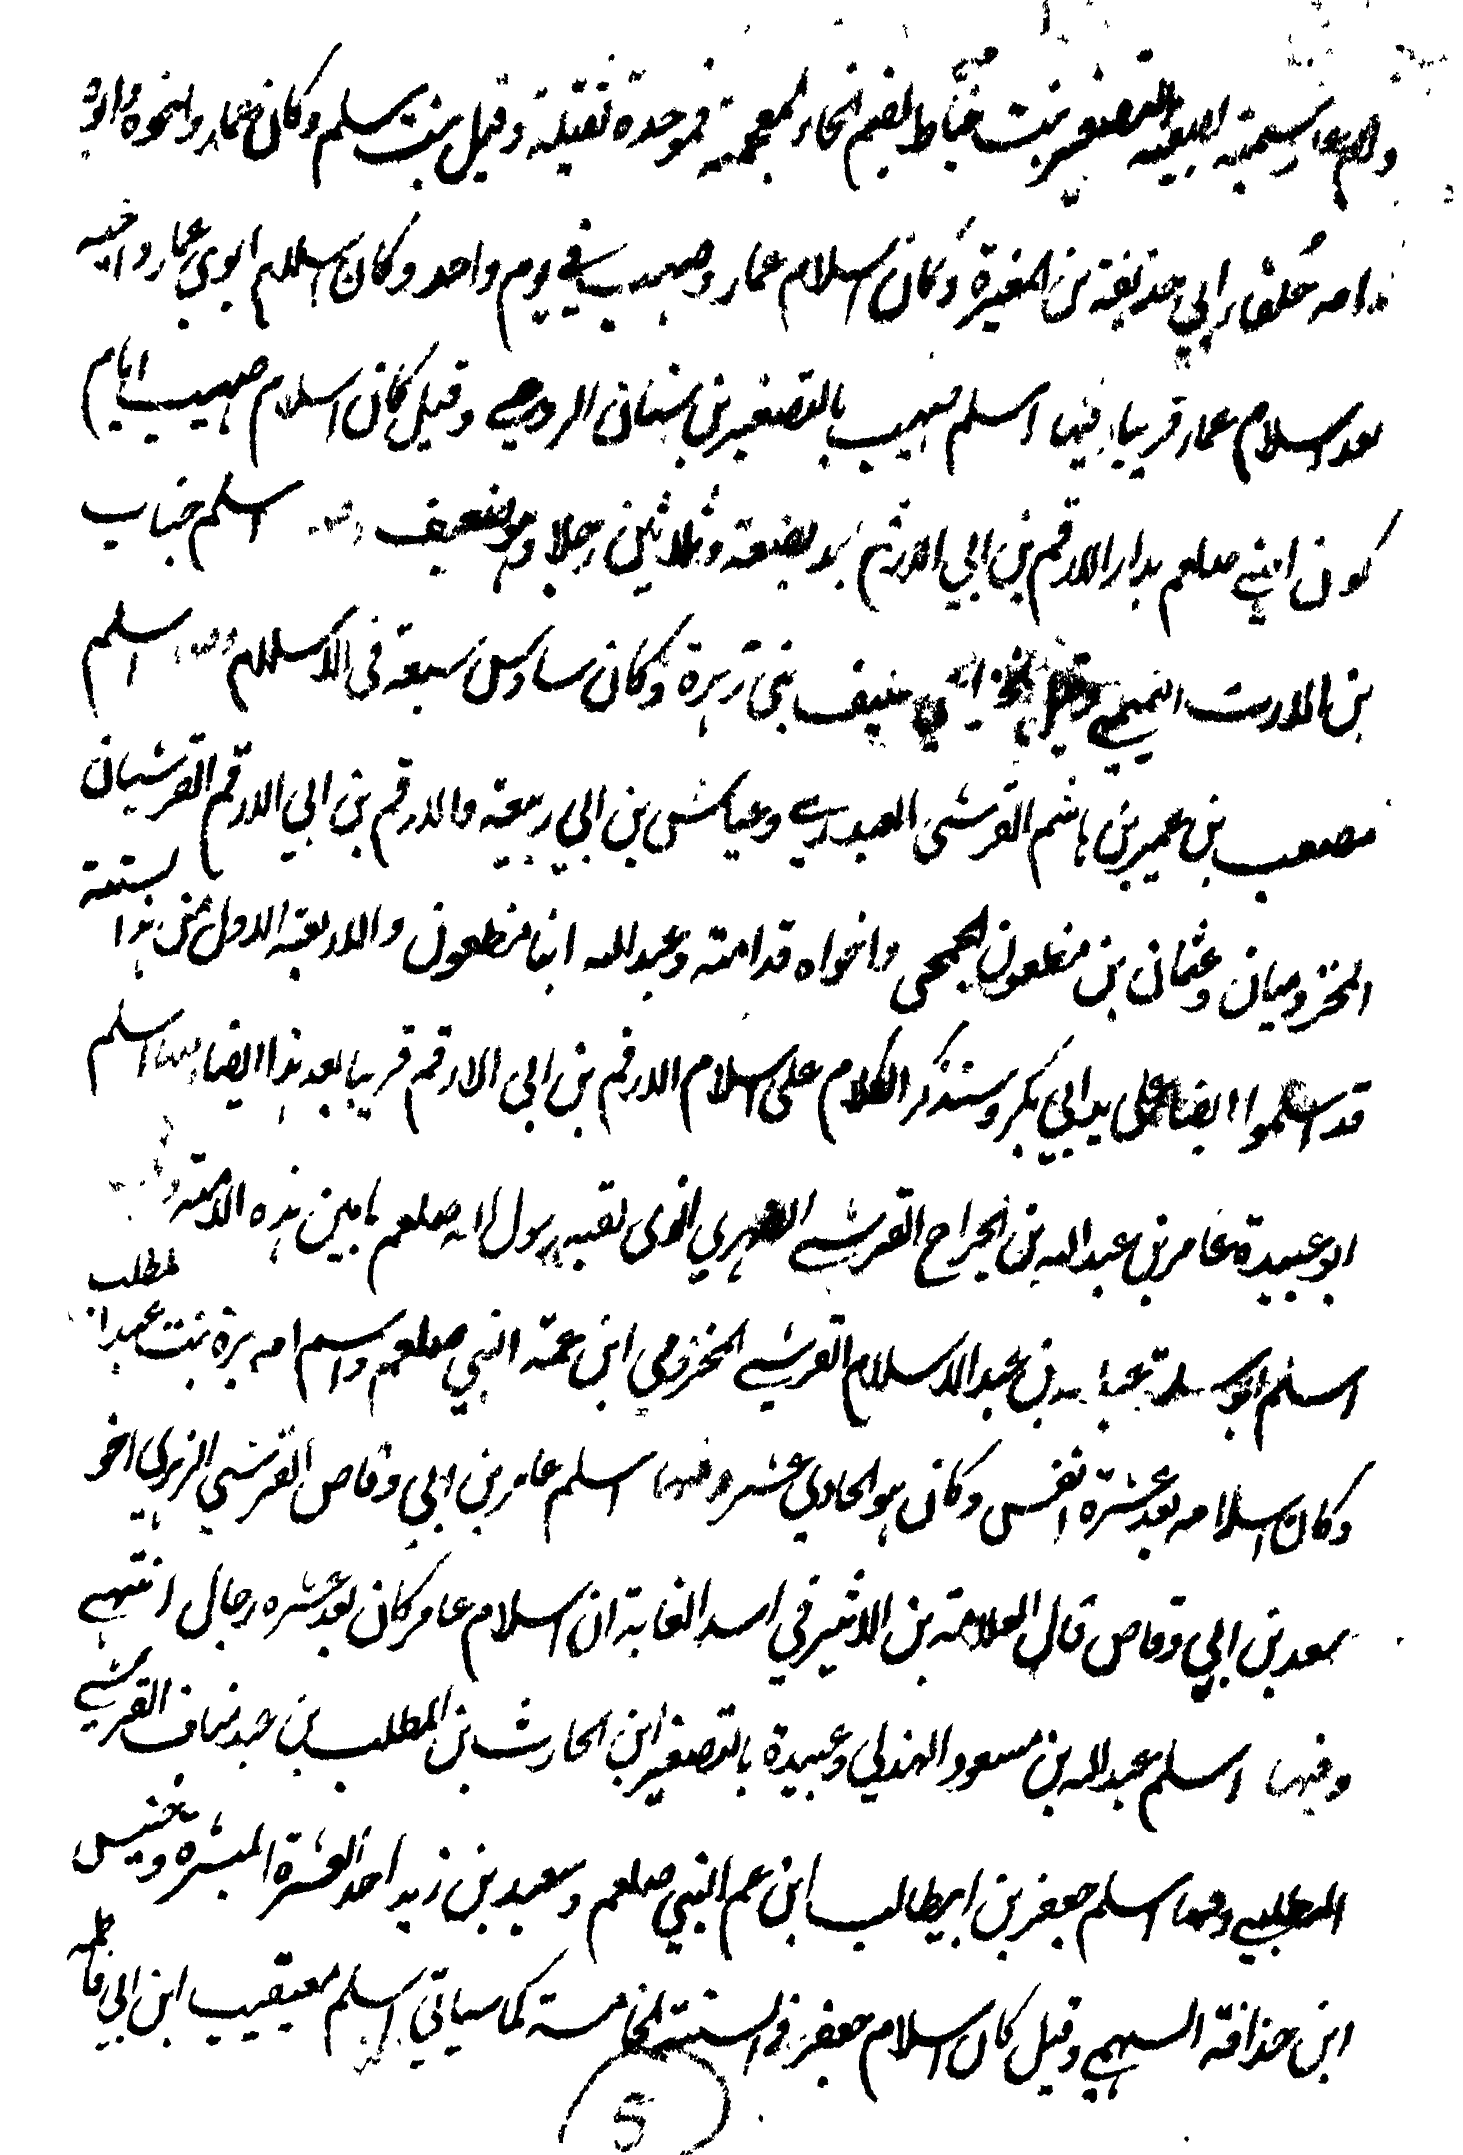 وامهما سمية بصيغة التصغير بنت خباط بضم الخاء المعجمة فموحدة ثقيلة وقيل بنت سلم وكان عمار واخوه وابوه
وامه حلفاء ابي حذيفة بن المغيرة وكان اسلام عمار وصهيب في يوم واحد وكان اسلام ابوي عمار واخيه
بعد اسلام عمار قريبا وفيها اسلم صهيب بالتصغير بن سنان الرومي وقيل كان اسلام صهيب ايام
كون النبي صلعم بدار الارقم بن ابي الارقم بعد بضعة وثلاثين رجلا وهو ضعيف وفيها اسلم خباب
بن الارت التميمي وقيل الخزاعي حليف بني زهرة وكان سادس سبعة في الاسلام وفيها اسلم
مصعب بن عمير بن هاشم القرشي العبدري وعياش بن ابي ربيعة والارقم بن ابي الارقم القرشيان
المخزوميان وعثمان بن مظعون الجمحي واخواه قدامة وعبدالله ابنا مظعون والاربعة الاول من هذا الستة
قد اسلموا ايضا على يد ابي بكر وسنذكر الكلام على اسلام الارقم بن ابي الارقم قريبا بعد هذا ايضا وفيها اسلم
ابو عبيدة عامر بن عبدالله بن الجراح القرشي الفهري الذي لقبه رسول الله صلعم بامين هذه الامة و
اسلم ابو سلمة عبدالله بن عبد الاسلام القرشي المخزومي ابن عمة النبي صلعم واسم امه برة بنت عبدالمطلب
وكان اسلامه بعد عشرة انفس وكان هو الحادي عشر وفيها اسلم عامر بن ابي وقاص القرشي الزهري اخو
سعد بن ابي وقاص قال العلامة بن الاثير في اسد الغابة ان اسلام عامر كان بعد عشره رجال انتهى
وفيها اسلم عبدالله بن مسعود الهذلي وعبيدة بالتصغير ابن الحارث بن المطلب بن عبد مناف القرشي
المطلبي وفيها اسلم جعفر بن ابيطالب ابن عم النبي صلعم وسعيد بن زيد احد العشرة المبشره وخنيس
ابن حذافة السهمي وقيل كان اسلام جعفر في السنة الخامسة كما سياتي اسلم معيقيب ابن ابي فاطمه
5